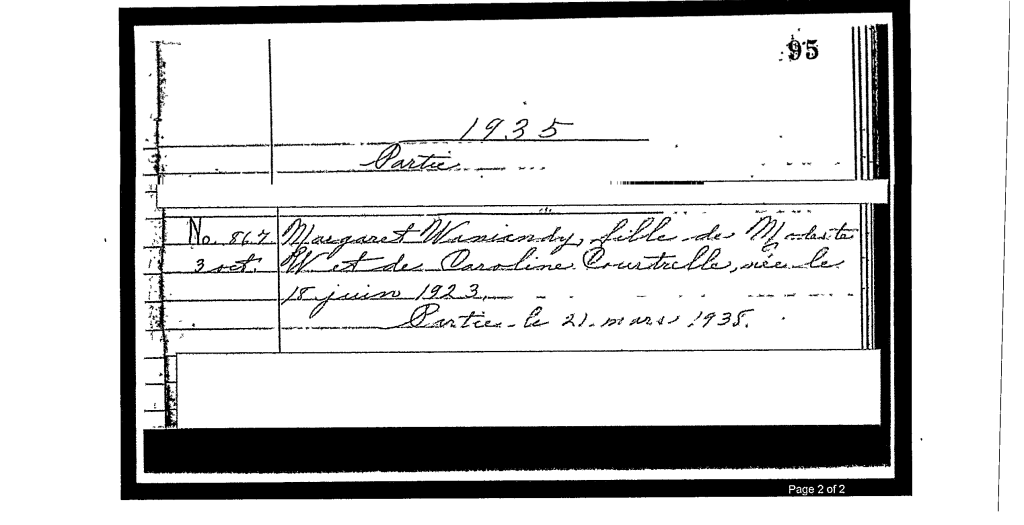 95
1935
Partie
No. 867. Margaret Waniandy, fille de Modeste
3 oct. W et de Caroline Courtrelle, née le
18 juin 1923.
Partie le 21 mars 1938.
Page 2 of 2